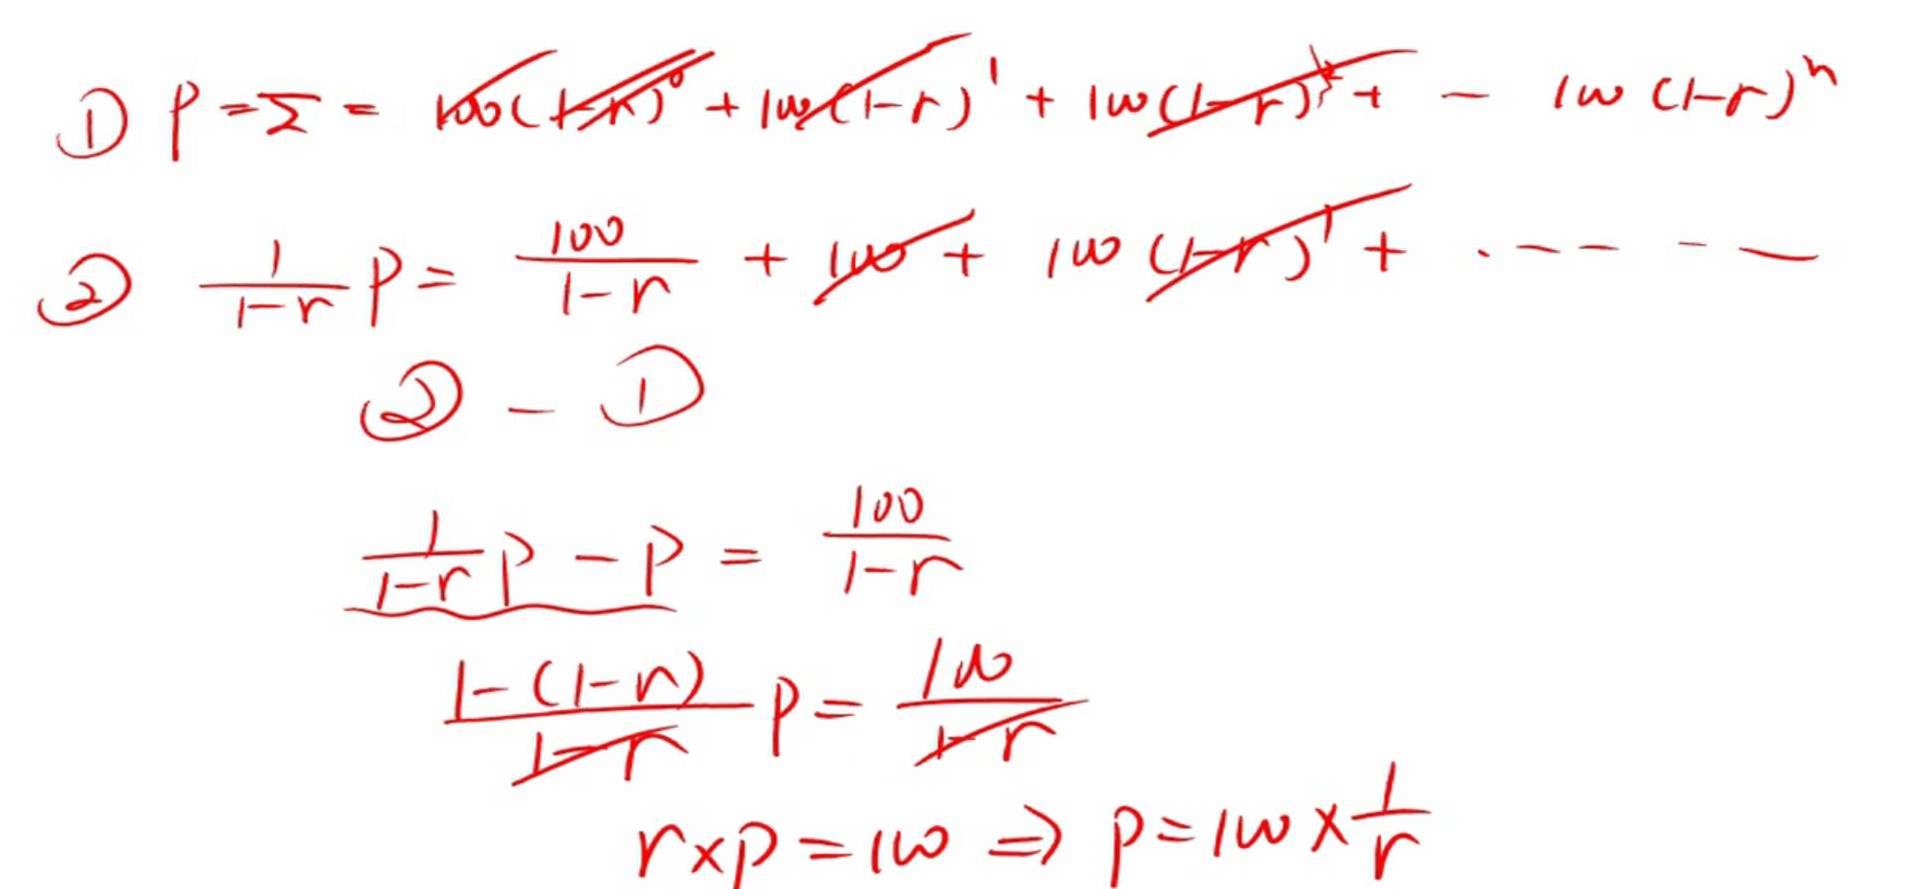 ① P = Σ = 100(1-r)⁰ + 100(1-r)¹ + 100(1-r)² + - 100(1-r)ⁿ
② \frac{1}{1-r} P = \frac{100}{1-r} + 100 + 100(1-r)¹ + . - - - - -
② - ①
\frac{1}{1-r} P - P = \frac{100}{1-r}
\frac{1-(1-r)}{1-r} P = \frac{100}{1-r}
r × P = 100 ⇒ P = 100 × \frac{1}{r}